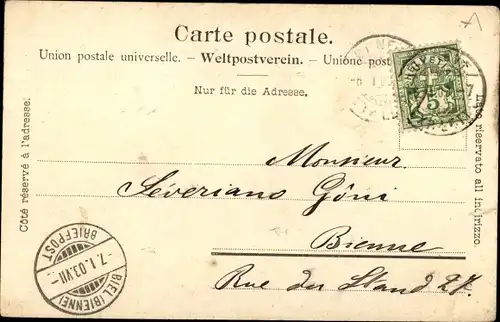 Carte postale.
Union postale universelle. - Weltpostverein. - Unione post
Nur für die Adresse.
Côté réservé à l'adresse.
Lato riservato all indirizzo.
HELVETIA
5
7
Monsieur
Séverians Göni
Bienne
Rue der Stand 27.
BRIEFPOST
-7.I.03.VII-
BIEL (BIENNE)